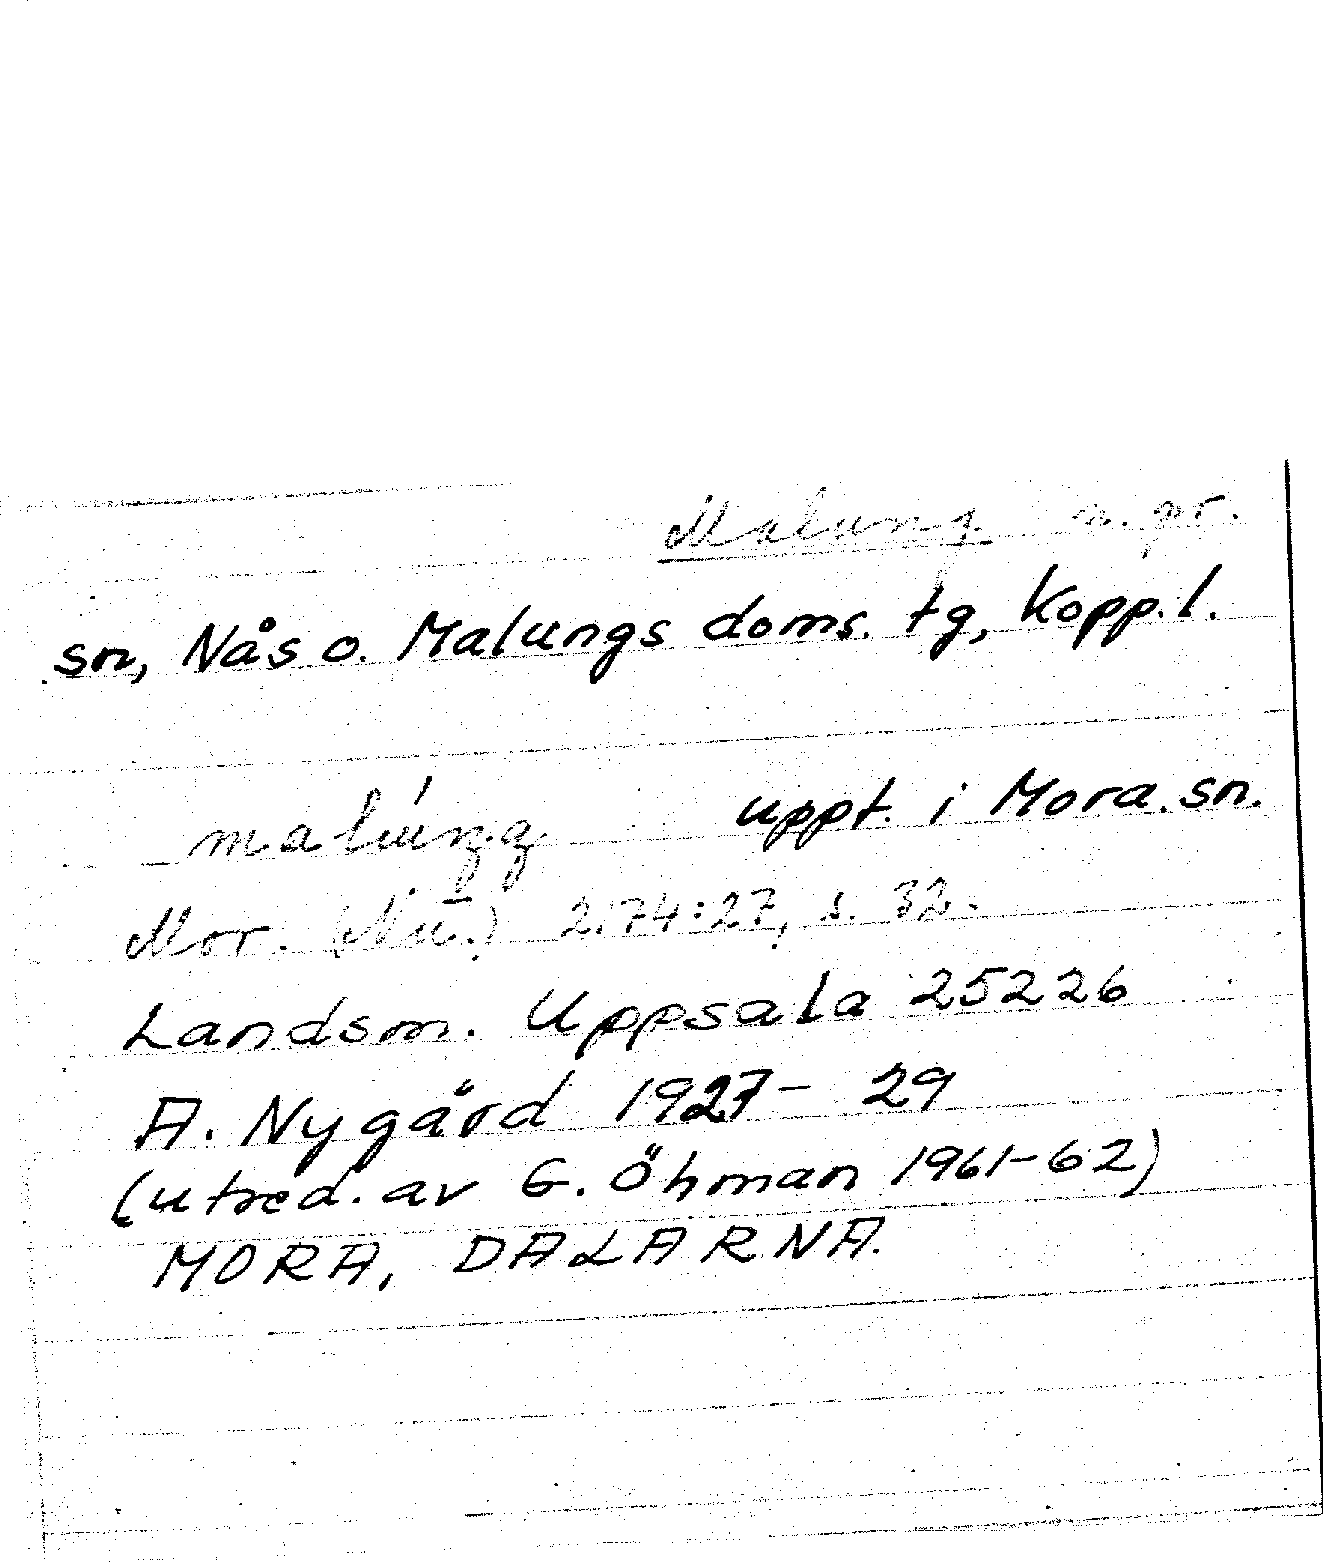 Malung n. pr.
sn, Nås o. Malungs doms. tg, Kopp. l.
uppt. i Mora sn.
Mor. 2174:27, s. 32.
Landsm. Uppsala 25226
A. Nygård 1927-29
(utred. av G. Öhman 1961-62)
MORA, DALARNA.